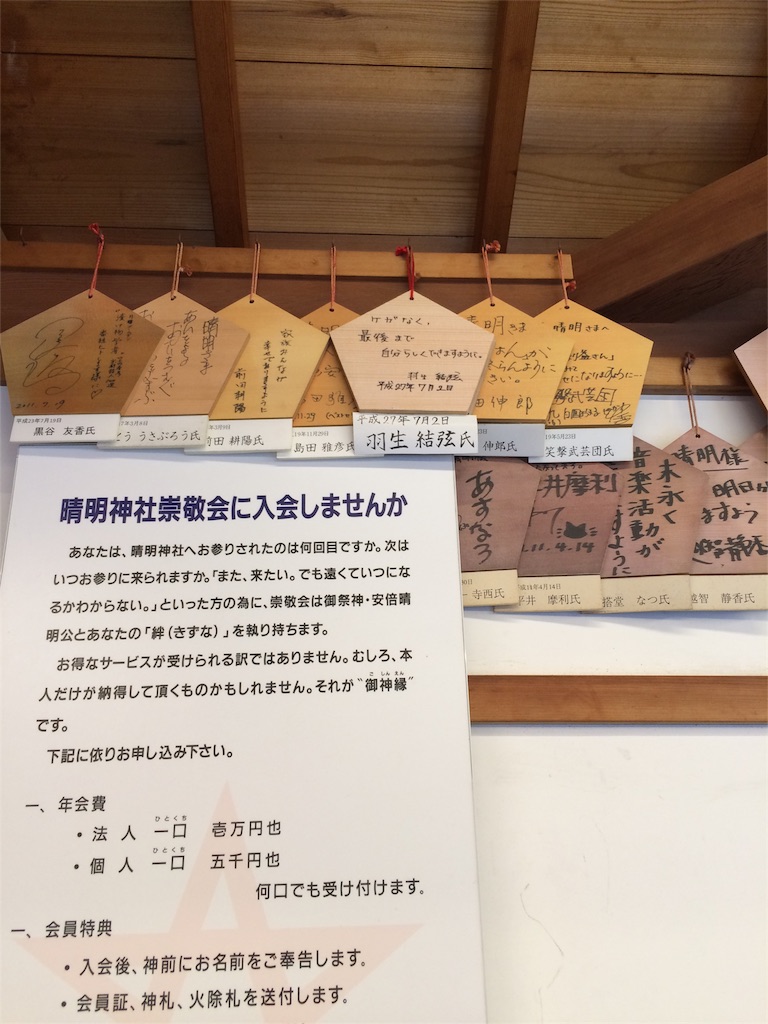 けがなく、
最後まで
自分らしくできますように。
羽生 結弦
平成27年7月2日
平成27年7月2日
羽生 結弦氏
家族みんなが
幸せでありますように
前田 耕陽
前田 耕陽氏
平成23年7月19日
黒谷 友香氏
2011.7.19
とう うさぶろう氏
島田 雅彦氏
晴明さま
伸郎
伸郎氏
晴明さまへ
笑撃武芸団氏
あすなろ
寺西氏
井摩利
11.4.14
平成18年4月14日
平井 摩利氏
末永く
音楽活動が
ますように
搭堂 なつ氏
晴明様
明日が
ますよう
越智 静香氏
晴明神社崇敬会に入会しませんか
あなたは、晴明神社へお参りされたのは何回目ですか。次は
いつお参りに来られますか。「また、来たい。でも遠くていつにな
るかわからない。」といった方の為に、崇敬会は御祭神・安倍晴
明公とあなたの「絆(きずな)」を執り持ちます。
お得なサービスが受けられる訳ではありません。むしろ、本
人だけが納得して頂くものかもしれません。それが“御神縁”
ごしんえん
です。
下記に依りお申し込み下さい。
一、年会費
ひとくち
・法人 一口 壱万円也
ひとくち
・個人 一口 五千円也
何口でも受け付けます。
一、会員特典
・入会後、神前にお名前をご奉告します。
・会員証、神札、火除札を送付します。